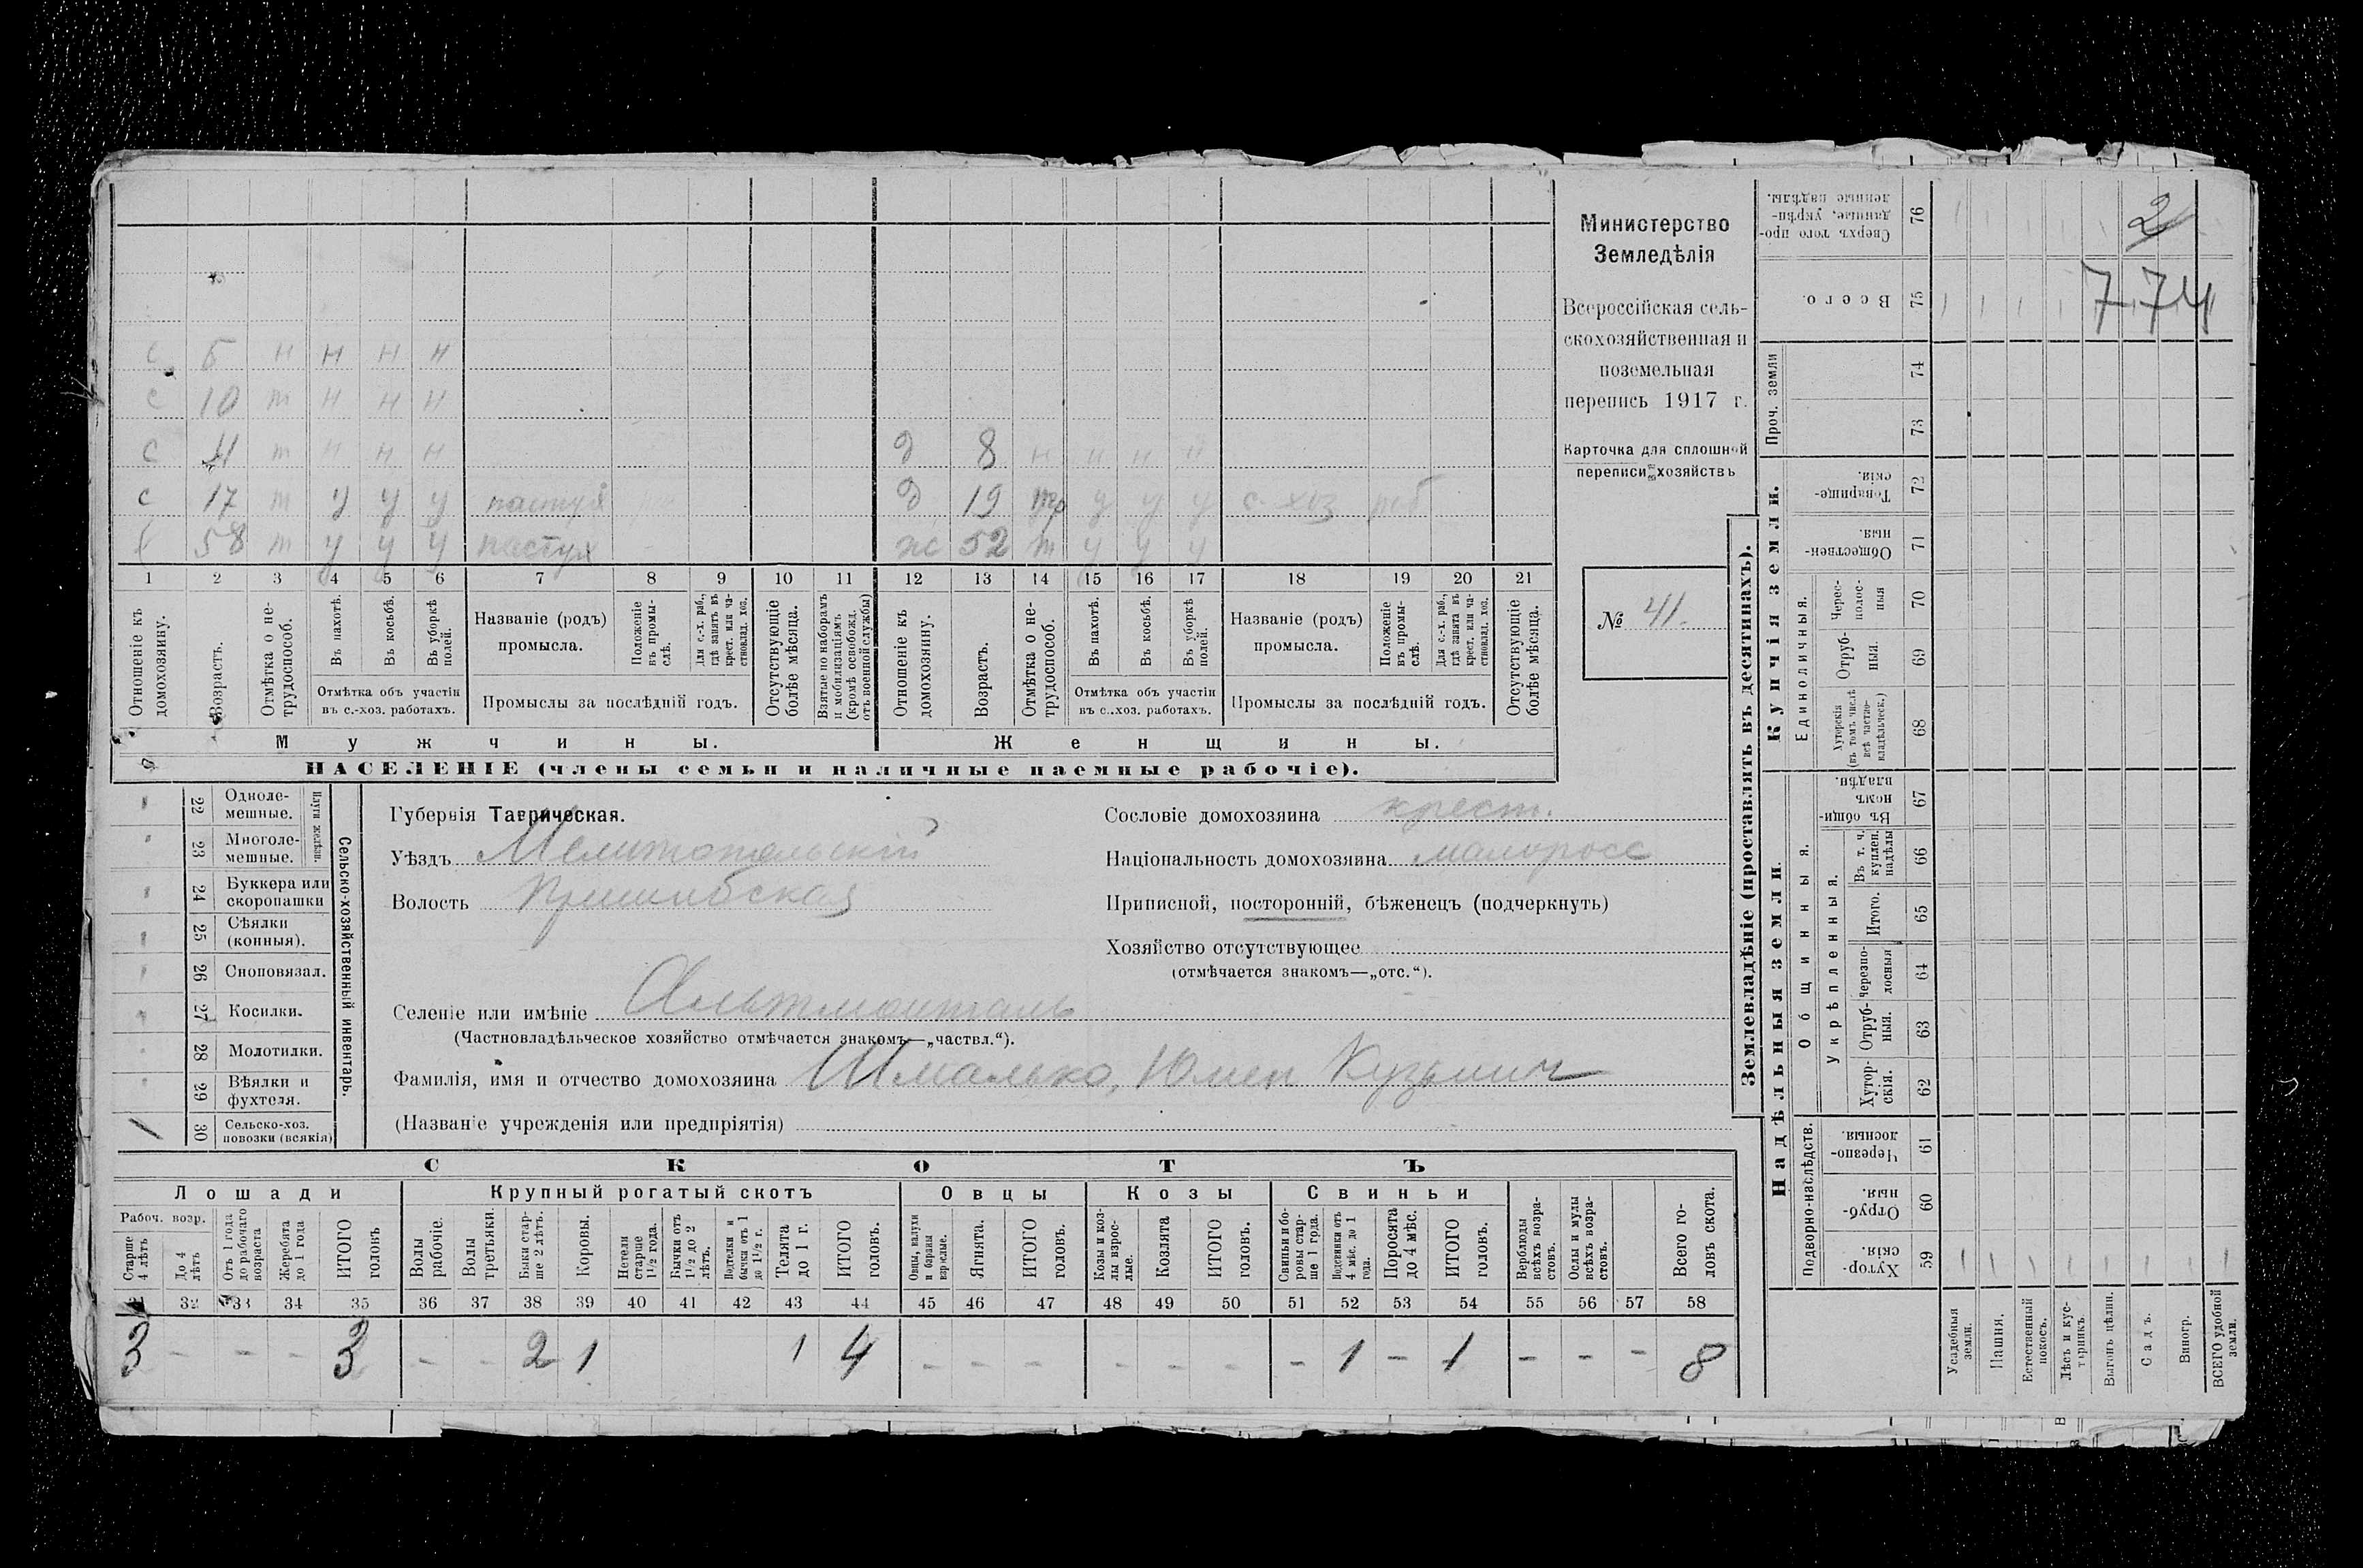 с 5 н н н н
с 10 т н н н
с 11 т н н н д 8 н н н н
с 17 т у у у пастух д 19 тр у у у с-хоз раб
58 т у у у пастух ж 52 т у у у
1 2 3 4 5 6 7 8 9 10 11 12 13 14 15 16 17 18 19 20 21
Отношеніе къ домохозяину.
Возрастъ.
Отмѣтка о нетрудоспособ.
Въ пахотѣ.
Въ косьбѣ.
Въ уборкѣ полей.
Отмѣтка объ участіи въ с.-хоз. работахъ.
Названіе (родъ) промысла.
Положеніе въ промыслѣ.
Для с.-х. раб., гдѣ занятъ въ крест. или частновлад. хоз.
Промыслы за послѣдній годъ.
Отсутствующіе болѣе мѣсяца.
Взятые по наборамъ и мобилизаціямъ (кромѣ освобожд. отъ военной службы)
Отношеніе къ домохозяину.
Возрастъ.
Отмѣтка о нетрудоспособ.
Въ пахотѣ.
Въ косьбѣ.
Въ уборкѣ полей.
Отмѣтка объ участіи въ с.-хоз. работахъ.
Названіе (родъ) промысла.
Положеніе въ промыслѣ.
Для с.-х. раб., гдѣ занята въ крест. или частновлад. хоз.
Промыслы за послѣдній годъ.
Отсутствующіе болѣе мѣсяца.
Мужчины. Женщины.
НАСЕЛЕНІЕ (члены семьи и наличные наемные рабочіе).
Министерство
Земледѣлія
Всероссійская сель-
скохозяйственная и
поземельная
перепись 1917 г.
Карточка для сплошной
переписи хозяйствъ
№ 41.
Сельско-хозяйственный инвентарь.
Плуги желѣзн.
22 Одноле-
мешные.
23 Многоле-
мешные.
24 Буккера или
скоропашки
25 Сѣялки
(конныя).
26 Сноповязал.
27 Косилки.
28 Молотилки.
29 Вѣялки и
фухтеля.
1 30 Сельско-хоз.
повозки (всякія)
Губернія Таврическая.
Уѣздъ Мелитопольскій
Волость Пришибская
Сословіе домохозяина крест.
Національность домохозяина малоросс
Приписной, посторонній, бѣженецъ (подчеркнуть)
Хозяйство отсутствующее
(отмѣчается знакомъ—„отс.“).
Селеніе или имѣніе Альтмонталь
(Частновладѣльческое хозяйство отмѣчается знакомъ—„частвл.“).
Фамилія, имя и отчество домохозяина Шмалько, Юмен Кузьмич
(Названіе учрежденія или предпріятія)
СКОТЪ
Лошади Крупный рогатый скотъ Овцы Козы Свиньи
Рабоч. возр.
Старше 4 лѣтъ
До 4 лѣтъ
Отъ 1 года до рабочаго возраста
Жеребята до 1 года
ИТОГО головъ
Волы рабочіе.
Волы третьяки.
Быки старше 2 лѣтъ.
Коровы.
Нетели старше 1½ года.
Бычки отъ 1½ до 2 лѣтъ.
Подтелки и бычки отъ 1 до 1½ г.
Телята до 1 г.
ИТОГО головъ.
Овцы, валухи и бараны взрослые.
Ягнята.
ИТОГО головъ.
Козы и козлы взрослые.
Козлята
ИТОГО головъ.
Свиньи и боровы старше 1 года.
Подсвинки отъ 4 мѣс. до 1 года.
Поросята до 4 мѣс.
ИТОГО головъ.
Верблюды всѣхъ возрастовъ.
Ослы и мулы всѣхъ возрастовъ.
Всего головъ скота.
32 33 34 35 36 37 38 39 40 41 42 43 44 45 46 47 48 49 50 51 52 53 54 55 56 57 58
3 - - - 3 - - 2 1 1 4 - - - - - - - 1 - 1 - - - 8
Землевладѣніе (проставлять въ десятинахъ).
Купчія земли.
Надѣльныя земли.
Сверхъ того проданные, укрѣпленные надѣлы. 76 2
Всего. 75 774
Проч. земли 74
73
Товарищескія. 72
Общественныя. 71
Единоличныя.
Чересполосныя 70
Отрубныя. 69
Хуторскія (въ томъ числѣ всѣ частновладѣльческ.) 68
Общинныя.
Въ общинномъ владѣн. 67
Укрѣпленныя.
Въ т. ч. куплен. надѣлы 66
Итого. 65
Черезполосныя 64
Отрубныя. 63
Хуторскія. 62
Подворно-наслѣдств.
Черезполосныя. 61
Отрубныя. 60
Хуторскія. 59
Усадебныя земли.
Пашня.
Естественный покосъ.
Лѣсъ и кустарникъ.
Выгонъ цѣлин.
Садъ.
Виногр.
ВСЕГО удобной земли.